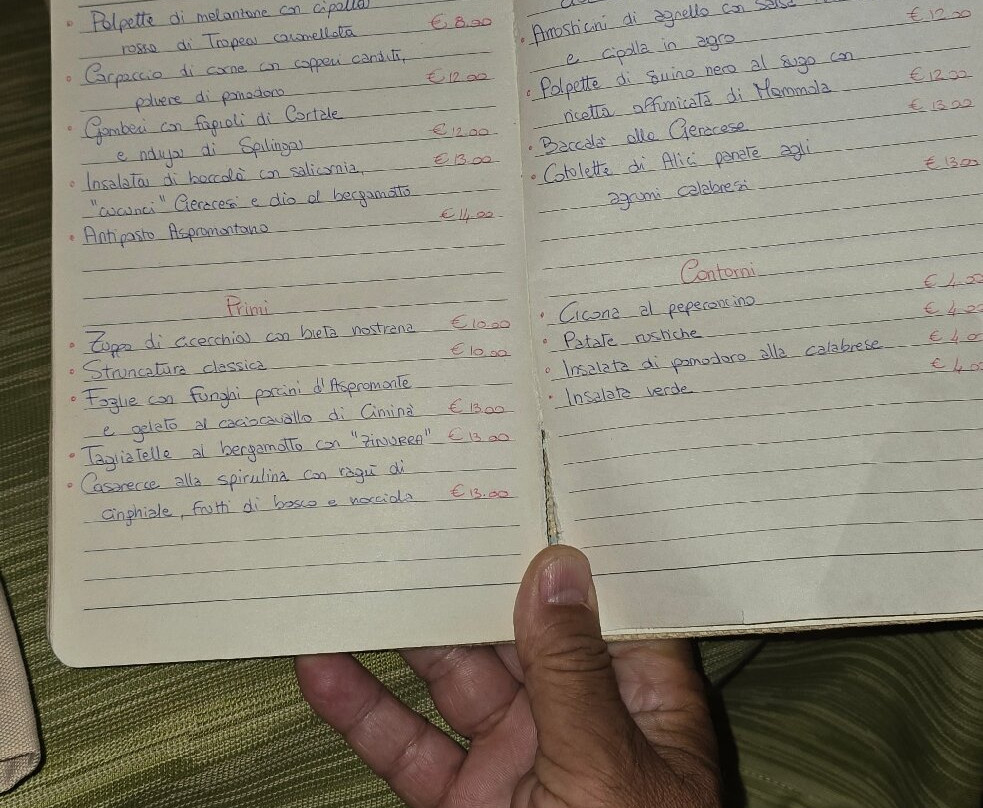 • Polpette di melanzane con cipolla
rossa di Tropea caramellata € 8.00
• Carpaccio di carne con capperi canditi,
polvere di pomodoro € 12.00
• Gamberi con fagioli di Cortale
e nduja di Spilinga € 12.00
• Insalata di baccalà con salicornia, € 13.00
"cucunci" Geracesi e olio al bergamotto
• Antipasto Aspromontano € 14.00
Primi
• Zuppa di cicerchia con bieta nostrana € 10.00
• Struncatura classica € 10.00
• Foglie con Funghi porcini d'Aspromonte
e gelato al caciocavallo di Ciminà € 13.00
• Tagliatelle al bergamotto con "ZIMURRA" € 13.00
• Casarecce alla spirulina con ragù di
cinghiale, frutti di bosco e nocciola € 13.00
• Arrosticini di agnello con salsa
e cipolla in agro € 12.00
• Polpette di suino nero al sugo con
ricotta affumicata di Mammola € 12.00
• Baccalà alla Geracese € 13.00
• Cotolette di Alici panate agli
agrumi calabresi € 13.00
Contorni
• Cicoria al peperoncino € 4.00
• Patate rustiche € 4.00
• Insalata di pomodoro alla calabrese € 4.0
• Insalata verde € 4.0